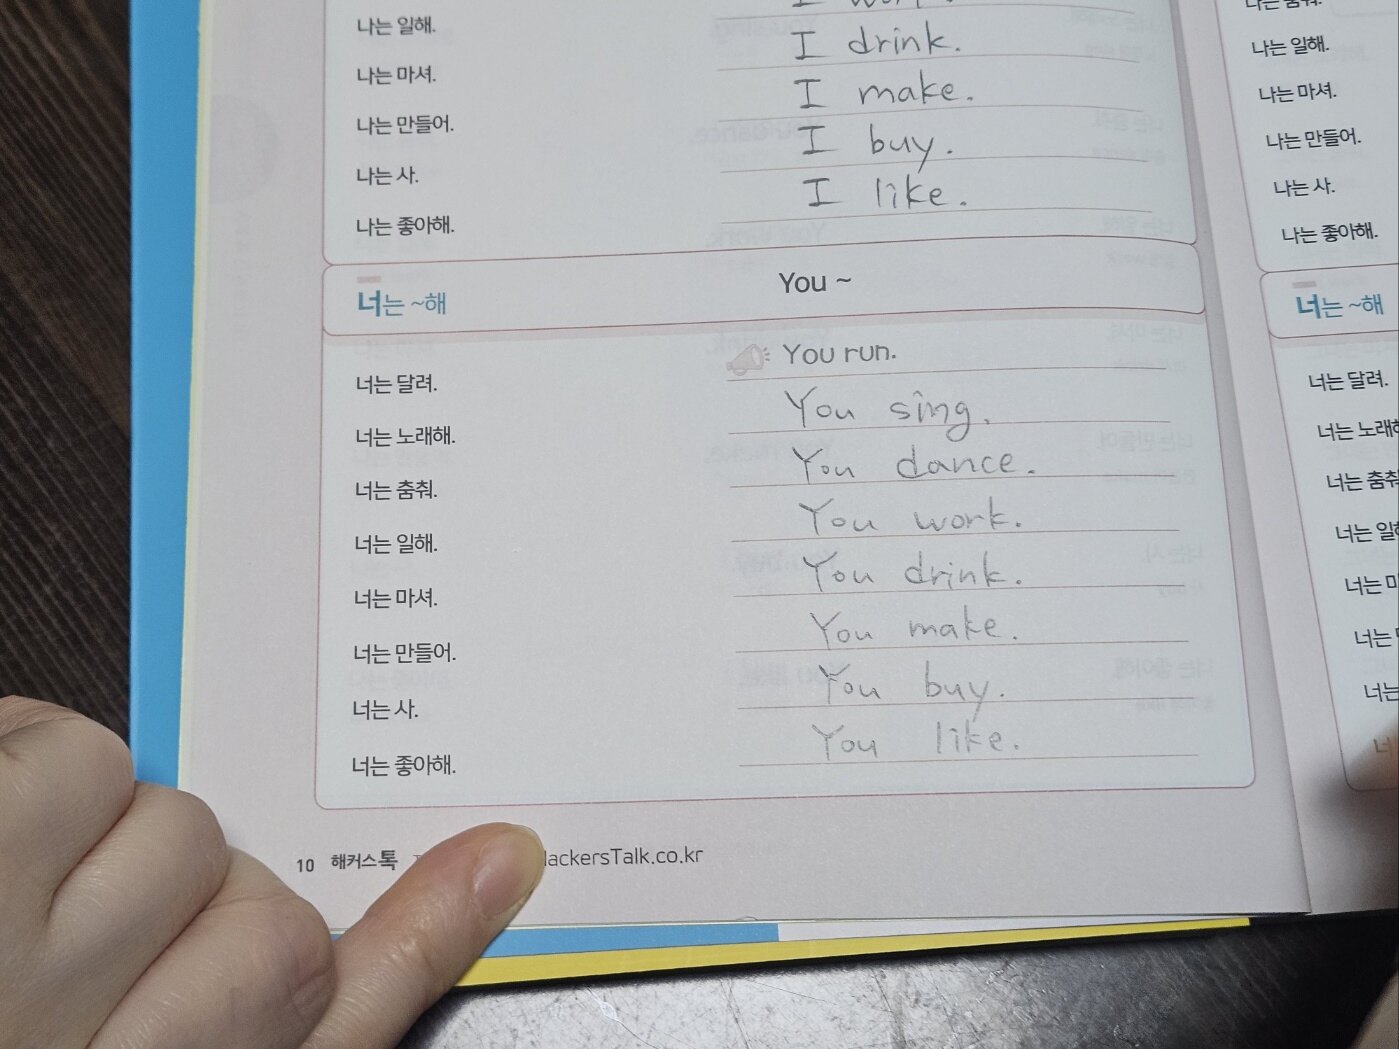 I work.
나는 일해.
I drink.
나는 마셔.
I make.
나는 만들어.
I buy.
나는 사.
I like.
나는 좋아해.
너는 ~해
You ~
너는 달려.
You run.
너는 노래해.
You sing.
너는 춤춰.
You dance.
너는 일해.
You work.
너는 마셔.
You drink.
너는 만들어.
You make.
너는 사.
You buy.
너는 좋아해.
You like.
10 해커스톡 HackersTalk.co.kr
나는 춤춰.
나는 일해.
나는 마셔.
나는 만들어.
나는 사.
나는 좋아해.
너는 ~해
너는 달려.
너는 노래해
너는 춤춰
너는 일해
너는
너는
너는